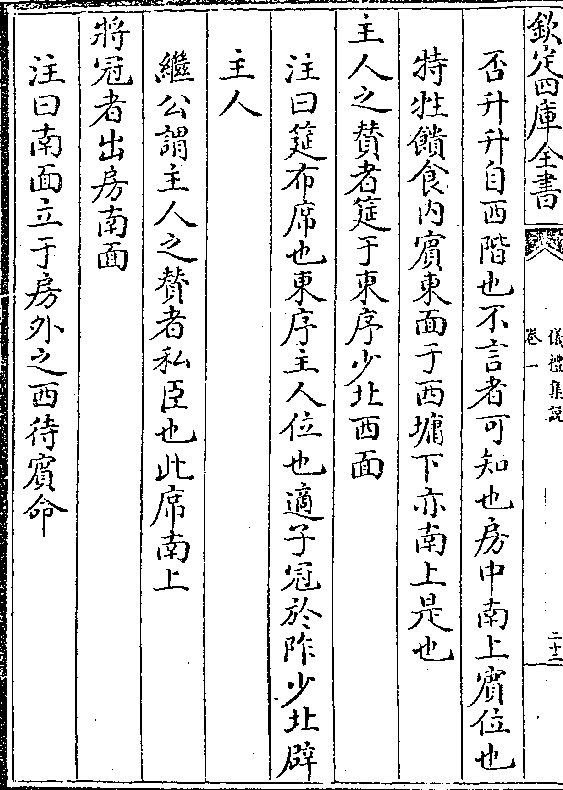 欽定四庫全書
儀禮集說
卷一
二十二
否升升自西階也不言者可知也房中南上賓位也
特牲饋食內賓東面于西墉下亦南上是也
主人之贊者筵于東序少北西面
注曰筵布席也東序主人位也適子冠於阼少北辟
主人
繼公謂主人之贊者私臣也此席南上
將冠者出房南面
注曰南面立于房外之西待賓命